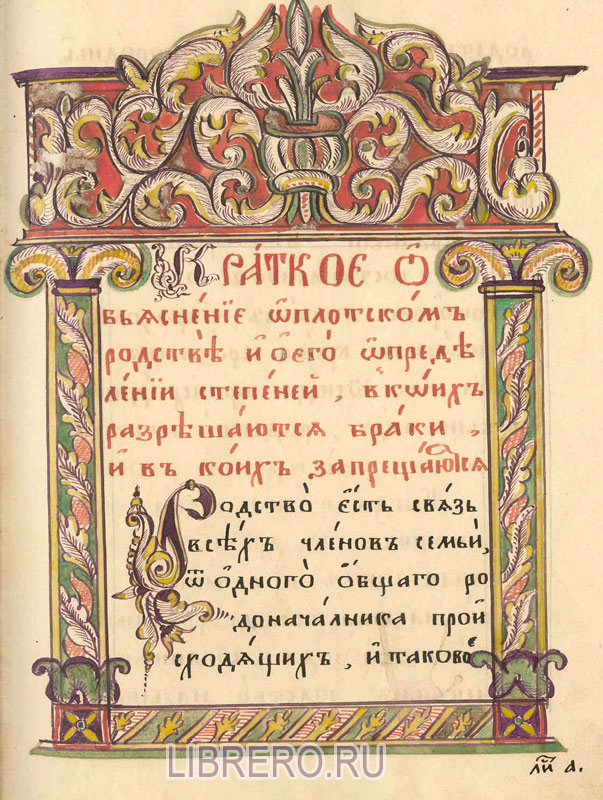 Кра́ткое ѻ҆
бъясне́нїе ѡ҆плотскомъ
родствѣ̀ и҆ ѻ҆его̀ ѡ҆предѣ
ле́нїй степе́ней, вко́ихъ
разрѣша́ются бра́ки,
и҆ въ ко́ихъ запреща́ются
Родство̀ є҆́сть свѧ́зь
всѣ́хъ чле́новъ семьѝ,
ѿ ѻ҆дного̀ ѻ҆́бщаго ро
донача́лника прои
сходѧ́щихъ, и҆таково̀
LIBRERO.RU
ли́ а҃.